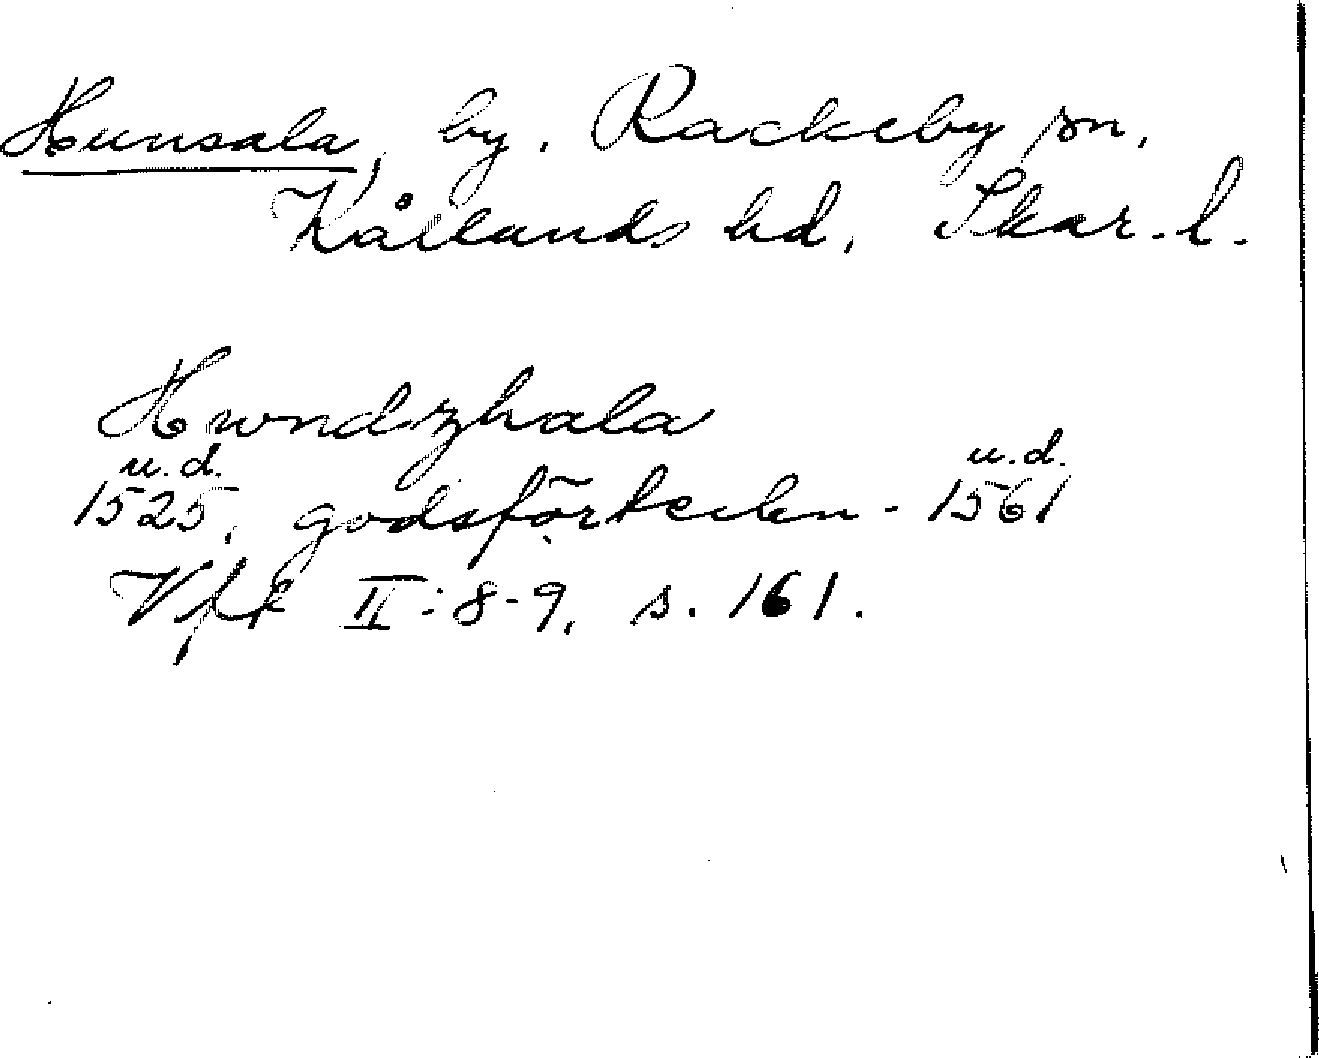 Hunsala, by. Rackeby sn,
Kållands hd, Skar. l.
Hwndzhala
u.d. u.d.
1525, godsförteckn. 1561
Vft II:8-9, s. 161.